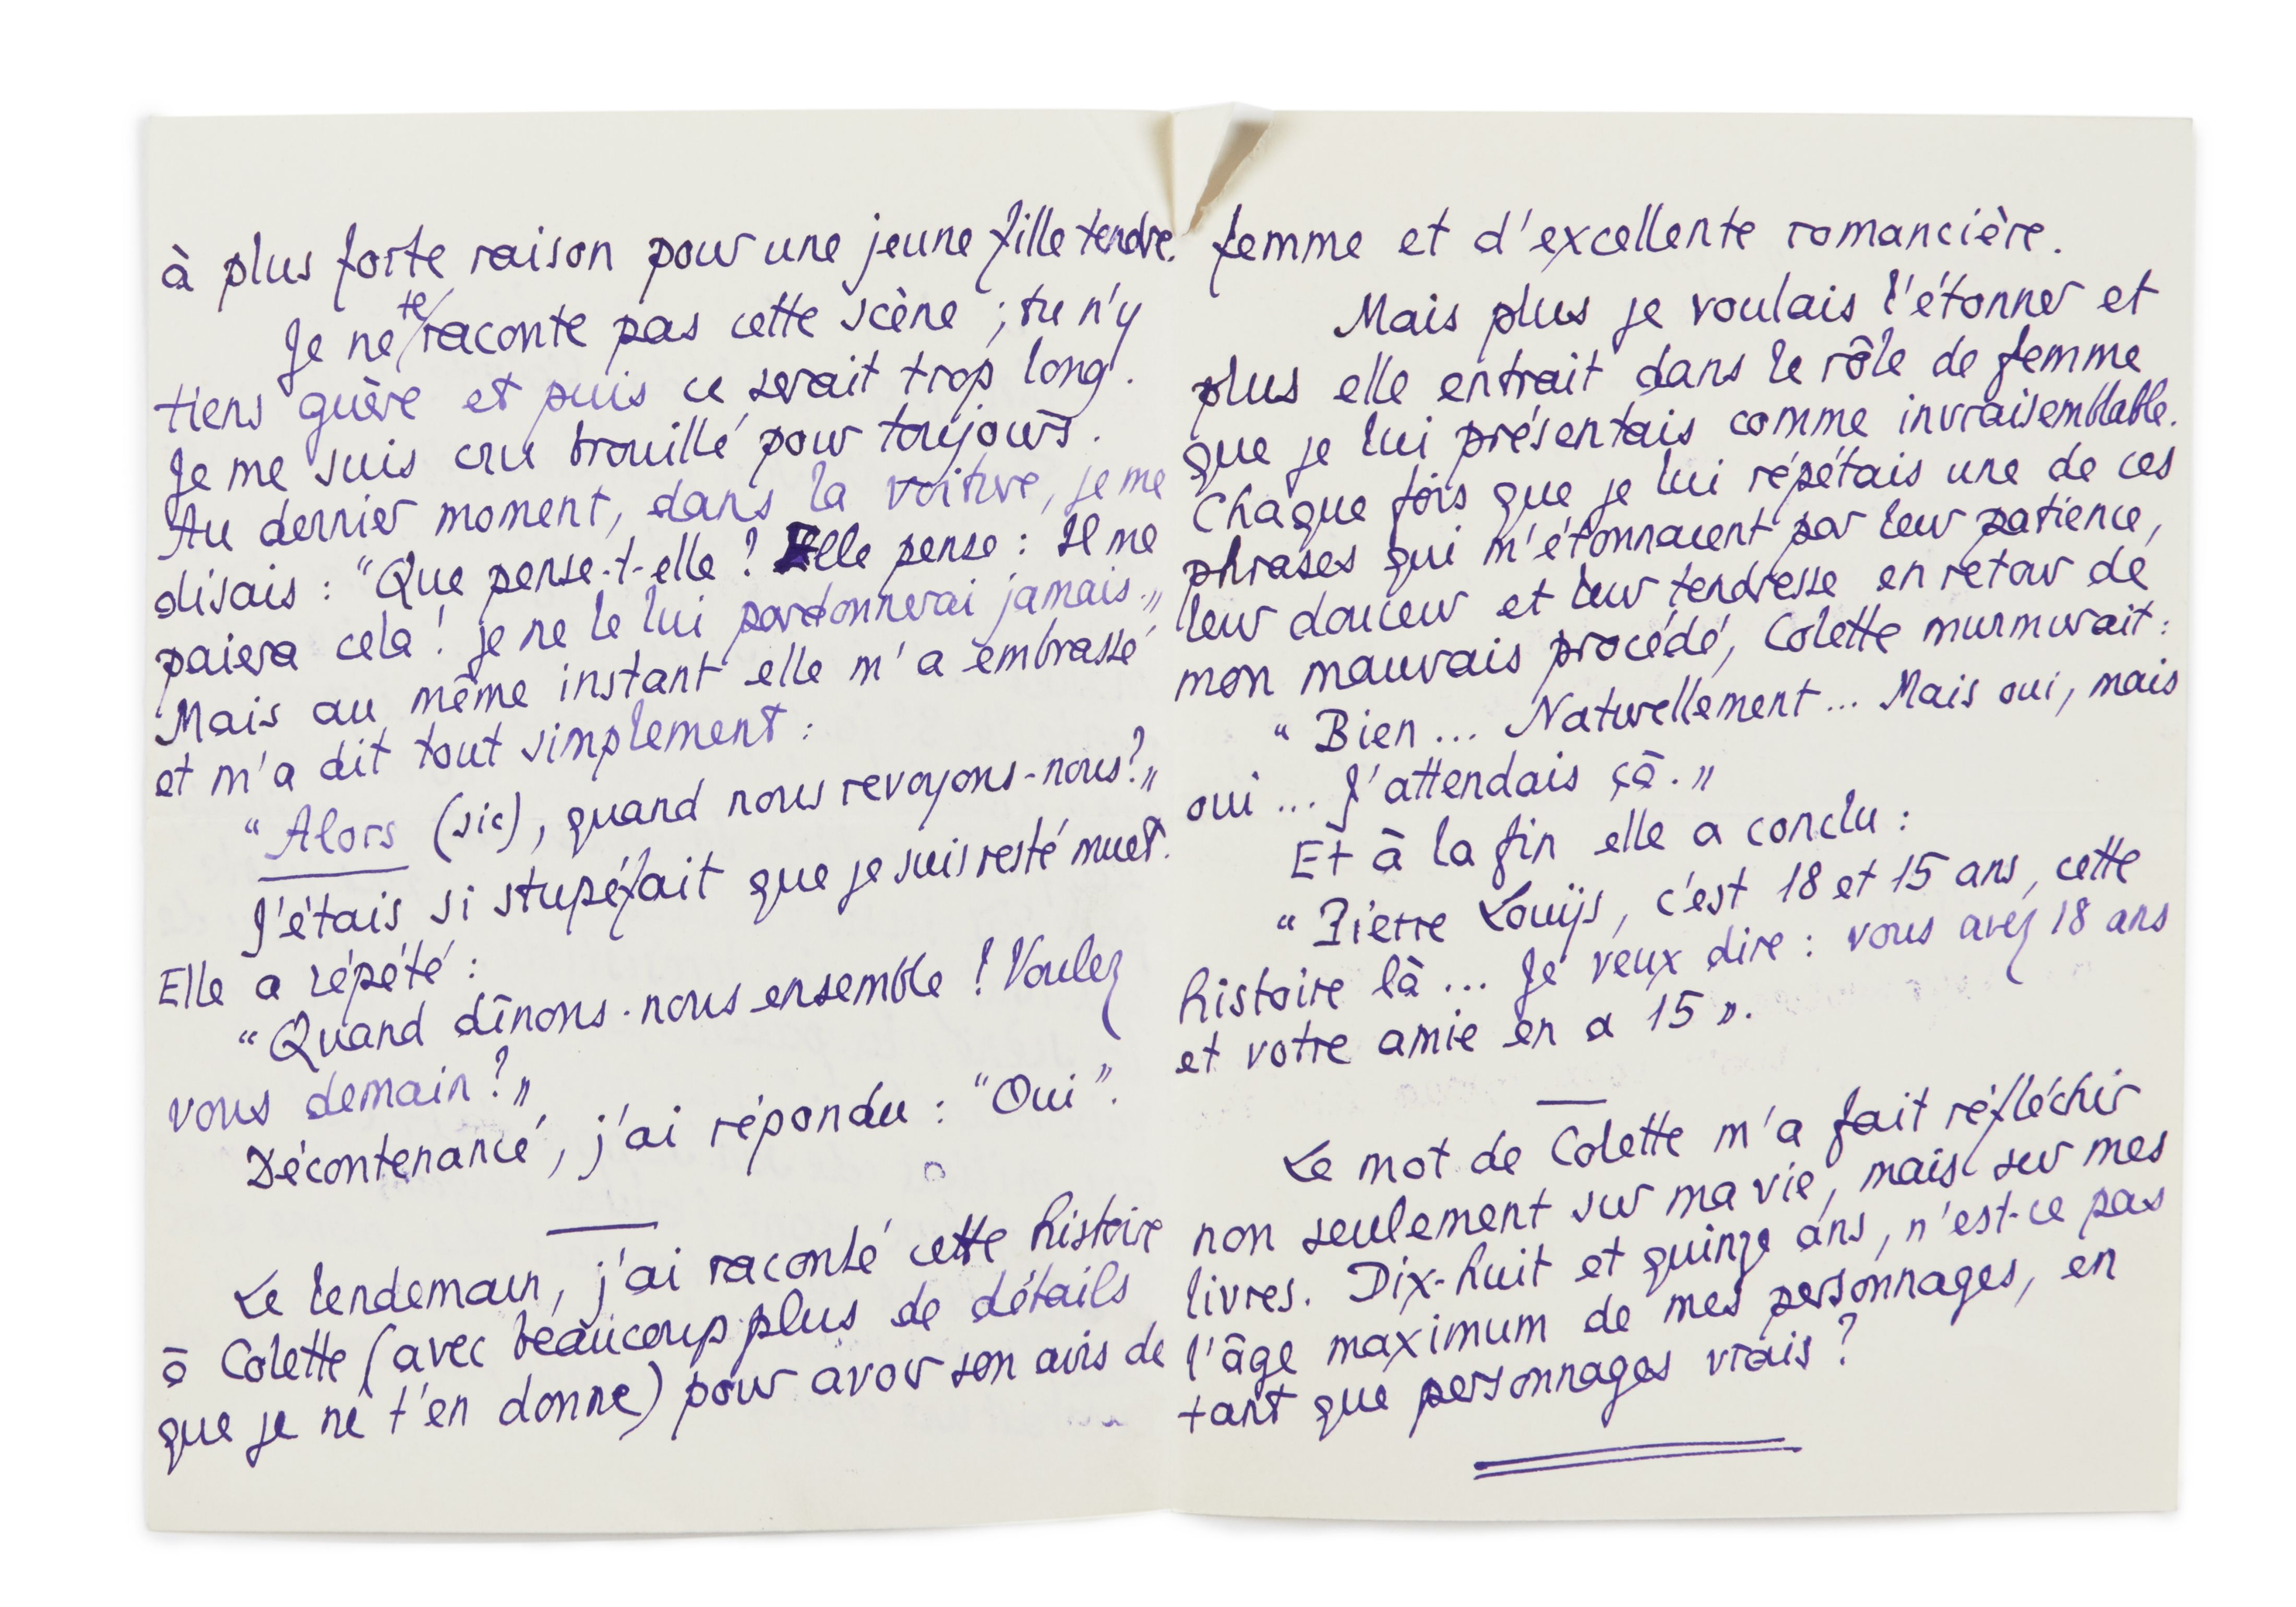 à plus forte raison pour une jeune fille tendre.
Je ne te raconte pas cette scène ; tu n'y
tiens guère et puis ce serait trop long.
Je me suis cru brouillé pour toujours.
Au dernier moment, dans la voiture, je me
disais : "Que pense-t-elle ? Elle pense : Il me
paiera cela ! je ne le lui pardonnerai jamais.„
Mais au même instant elle m'a embrassé
et m'a dit tout simplement :
"Alors (sic), quand nous revoyons-nous?„
J'étais si stupéfait que je suis resté muet.
Elle a répété :
"Quand dînons-nous ensemble ! Voulez
vous demain ?„
Décontenancé, j'ai répondu : "Oui".
Le lendemain, j'ai raconté cette histoire
à Colette (avec beaucoup plus de détails
que je ne t'en donne) pour avoir son avis de
femme et d'excellente romancière.
Mais plus je voulais l'étonner et
plus elle entrait dans le rôle de femme
que je lui présentais comme invraisemblable.
Chaque fois que je lui répétais une de ces
phrases qui m'étonnaient par leur patience,
leur douceur et leur tendresse en retour de
mon mauvais procédé, Colette murmurait :
"Bien ... Naturellement ... Mais oui, mais
oui ... J'attendais çà.„
Et à la fin elle a conclu :
"Pierre Louÿs, c'est 18 et 15 ans, cette
histoire là ... Je veux dire : vous avez 18 ans
et votre amie en a 15 ».
Le mot de Colette m'a fait réfléchir
non seulement sur ma vie, mais sur mes
livres. Dix-huit et quinze ans, n'est-ce pas
l'âge maximum de mes personnages, en
tant que personnages vrais ?